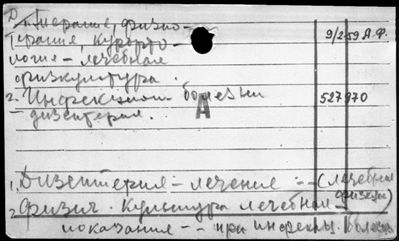 Д. терапия, физио-
терапия, курорто-
логия – лечебная
физкультура.
9/259 А.Ф.
2. Инфекцион. болезни
– дизентерия.
527970
А
1. Дизентерия – лечение – – (лечебная
физкул)
2. Физич. культура лечебная –
показания – – при инфекц. болезн